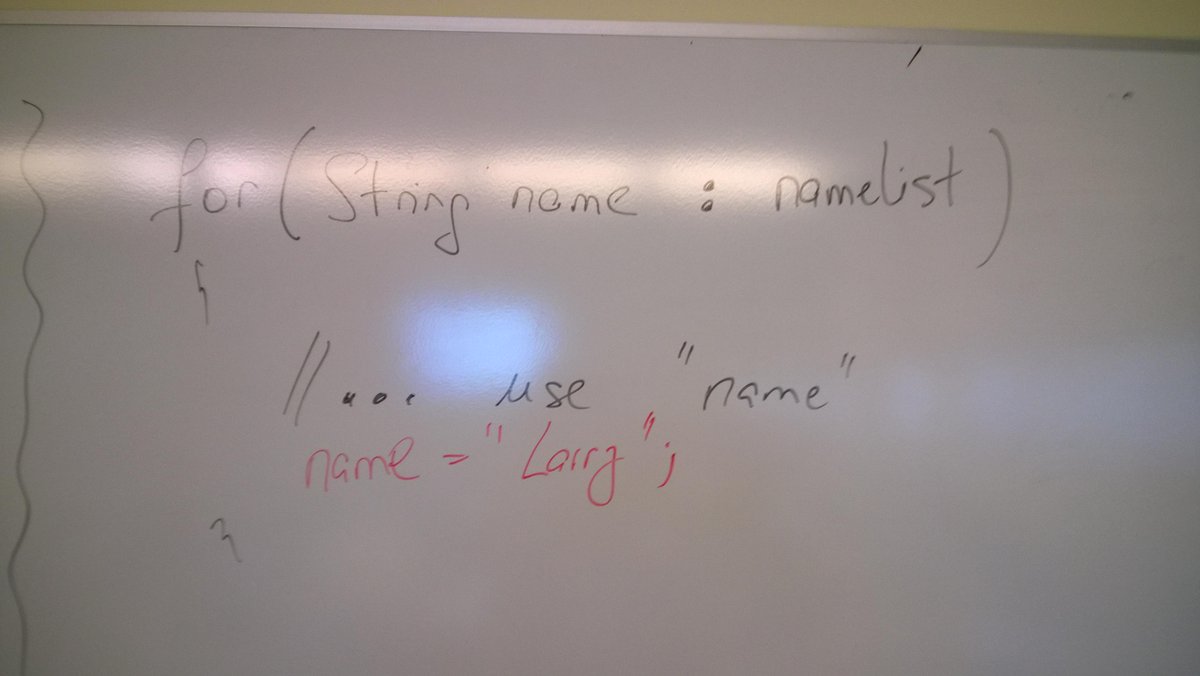 for (String name : namelist)
{
//... use "name"
name = "Larry";
}